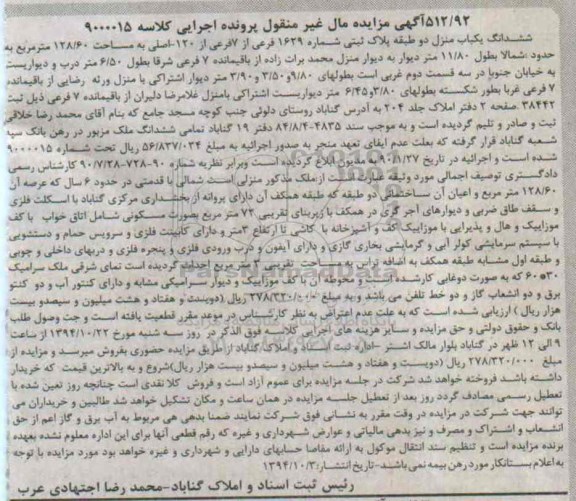 ۵۱۲/۹۲آگهی مزایده مال غیر منقول پرونده اجرایی کلاسه ۹۰۰۰۰۱۵
ششدانگ یکباب منزل دو طبقه پلاک ثبتی شماره ۱۶۲۹ فرعی از ۷فرعی از ۱۲۰-اصلی به مساحت ۱۲۸/۶۰ مترمربع به
حدود :شمالا بطول ۱۱/۸۰ متر دیوار به دیوار منزل محمد برات زاده از باقیمانده ۷ فرعی شرقا بطول ۶/۵۰ متر درب و دیواریست
به خیابان جنوبا در سه قسمت دوم غربی است بطولهای ۹/۸۰و۳/۵۰ و ۳/۹۰ متر دیوار اشتراکی با منزل ورثه رضایی از باقیمانده
۷ فرعی غربا بطور شکسته بطولهای ۳/۸۰و۶/۴۵ متر دیواریست اشتراکی بامنزل غلامرضا دلیران از باقیمانده ۷ فرعی ذیل ثبت
۳۸۴۴۲ صفحه ۲ دفتر املاک جلد ۲۰۴ به آدرس گناباد روستای دلوئی جنب کوچه مسجد جامع که بنام آقای محمد رضا خلاقی
ثبت و صادر و تلیم گردیده است و به موجب سند ۴۸۳۵-۸۴/۸/۴ دفتر ۱۹ گناباد تمامی ششدانگ ملک مزبور در رهن بانک سپه
شعبه گناباد قرار گرفته که بعلت عدم ایفای تعهد منجر به صدور اجرائیه به مبلغ ۵۶/۸۳۷/۰۳۴ ریال تحت شماره ۹۰۰۰۰۱۵
شده است و اجرائیه در تاریخ ۹۰/۱/۲۷ به مدیون ابلاغ گردیده است وبرابر نظریه شماره ۹۰-۷۲۸-۹۰/۷/۲۸ کارشناس رسمی
دادگستری توصیف اجمالی مورد وثیقه عبارت است از ملک مذکور منزلی است شمالی با قدمتی در حدود ۶ سال که عرصه آن
۱۲۸/۶۰ متر مربع و اعیان آن ساختمانی دو طبقه که طبقه همکف آن دارای پروانه از بخشداری مرکزی گناباد با اسکلت فلزی
و سقف طاق ضربی و دیوارهای آجر گری در همکف با زیربنای تقریبی ۷۲ متر مربع بصورت مسکونی شامل اتاق خواب با کف
موزاییک و هال و پذیرایی با موزاییک کف و آشپزخانه با کاشی تا ارتفاع ۳متر و دارای کابینت فلزی و سرویس حمام و دستشویی
با سیستم سرمایشی کولر آبی و گرمایشی بخاری گازی و دارای آیفون و درب ورودی فلزی و پنجره فلزی و دربهای داخلی و چوبی
و طبقه اول مشابه طبقه همکف به اضافه تراس به مساحت تقریبی متر مربع احداث گردیده است نمای شرقی ملک سرامیک
۳۰*۶۰ که به صورت دوغابی کارشده است و محوطه آن با کف موزاییک و دیوار سرامیکی مشابه و دارای کنتور آب و دو کنتور
برق و دو انشعاب گاز و دو خط تلفن می باشد و به مبلغ ۲۷۸/۳۲۰/۰۰۰ ریال (دویست و هفتاد و هشت میلیون و سیصدو بیست
هزار ریال ) ارزیابی شده است که به علت عدم اعتراض به نظر کارشناس در موعد مقرر قطعیت یافته است و جت وصول طلب
بانک و حقوق دولتی و حق مزایده و سایر هزینه های اجرایی کلاسه فوق الذکر در روز سه شنبه مورخ ۱۳۹۴/۱۰/۲۲ از ساعت
۹ الی ۱۲ ظهر در گناباد بلوار مالک اشتر –اداره ثبت اسناد و املاک گناباد از طریق مزایده حضوری بفروش میرسد و مزایده از
مبلغ ۲۷۸/۳۲۰/۰۰۰ ریال (دویست و هفتاد و هشت میلیون و سیصدو بیست هزار ریال)شروع و به بالاترین قیمت که خریدار
داشته باشد فروخته خواهد شد شرکت در جلسه مزایده برای عموم آزاد است و فروش کلا نقدی است چنانچه روز تعین شده با
تعطیل رسمی مصادف گردد روز بعد از تعطیل جلسه مزایده در همان ساعت و مکان تشکیل خواهد شد طالبین و خریداران می
توانند جهت شرکت در مزایده در وقت مقرر به نشانی فوق شرکت نمایند ضمنا بدهی هی مربوط به آب برق و گاز اعم از حق
انشعاب و اشتراک و مصرف و نیز بدهی مالیاتی و عوارض شهرداری و غیره که رقم قطعی آنها برای این اداره معلوم نشده بعهده
برنده مزایده است و تنظیم سند انتقال موکول به ارائه مفاصا حسابهای دارایی و شهرداری و غیره خواهد بود مورد مزایده با توجه
به اعلام بستانکار مورد رهن بیمه نمی باشد-تاریخ انتشار:۱۳۹۴/۱۰/۳
رئیس ثبت اسناد و املاک گناباد-محمد رضا اجتهادی عرب